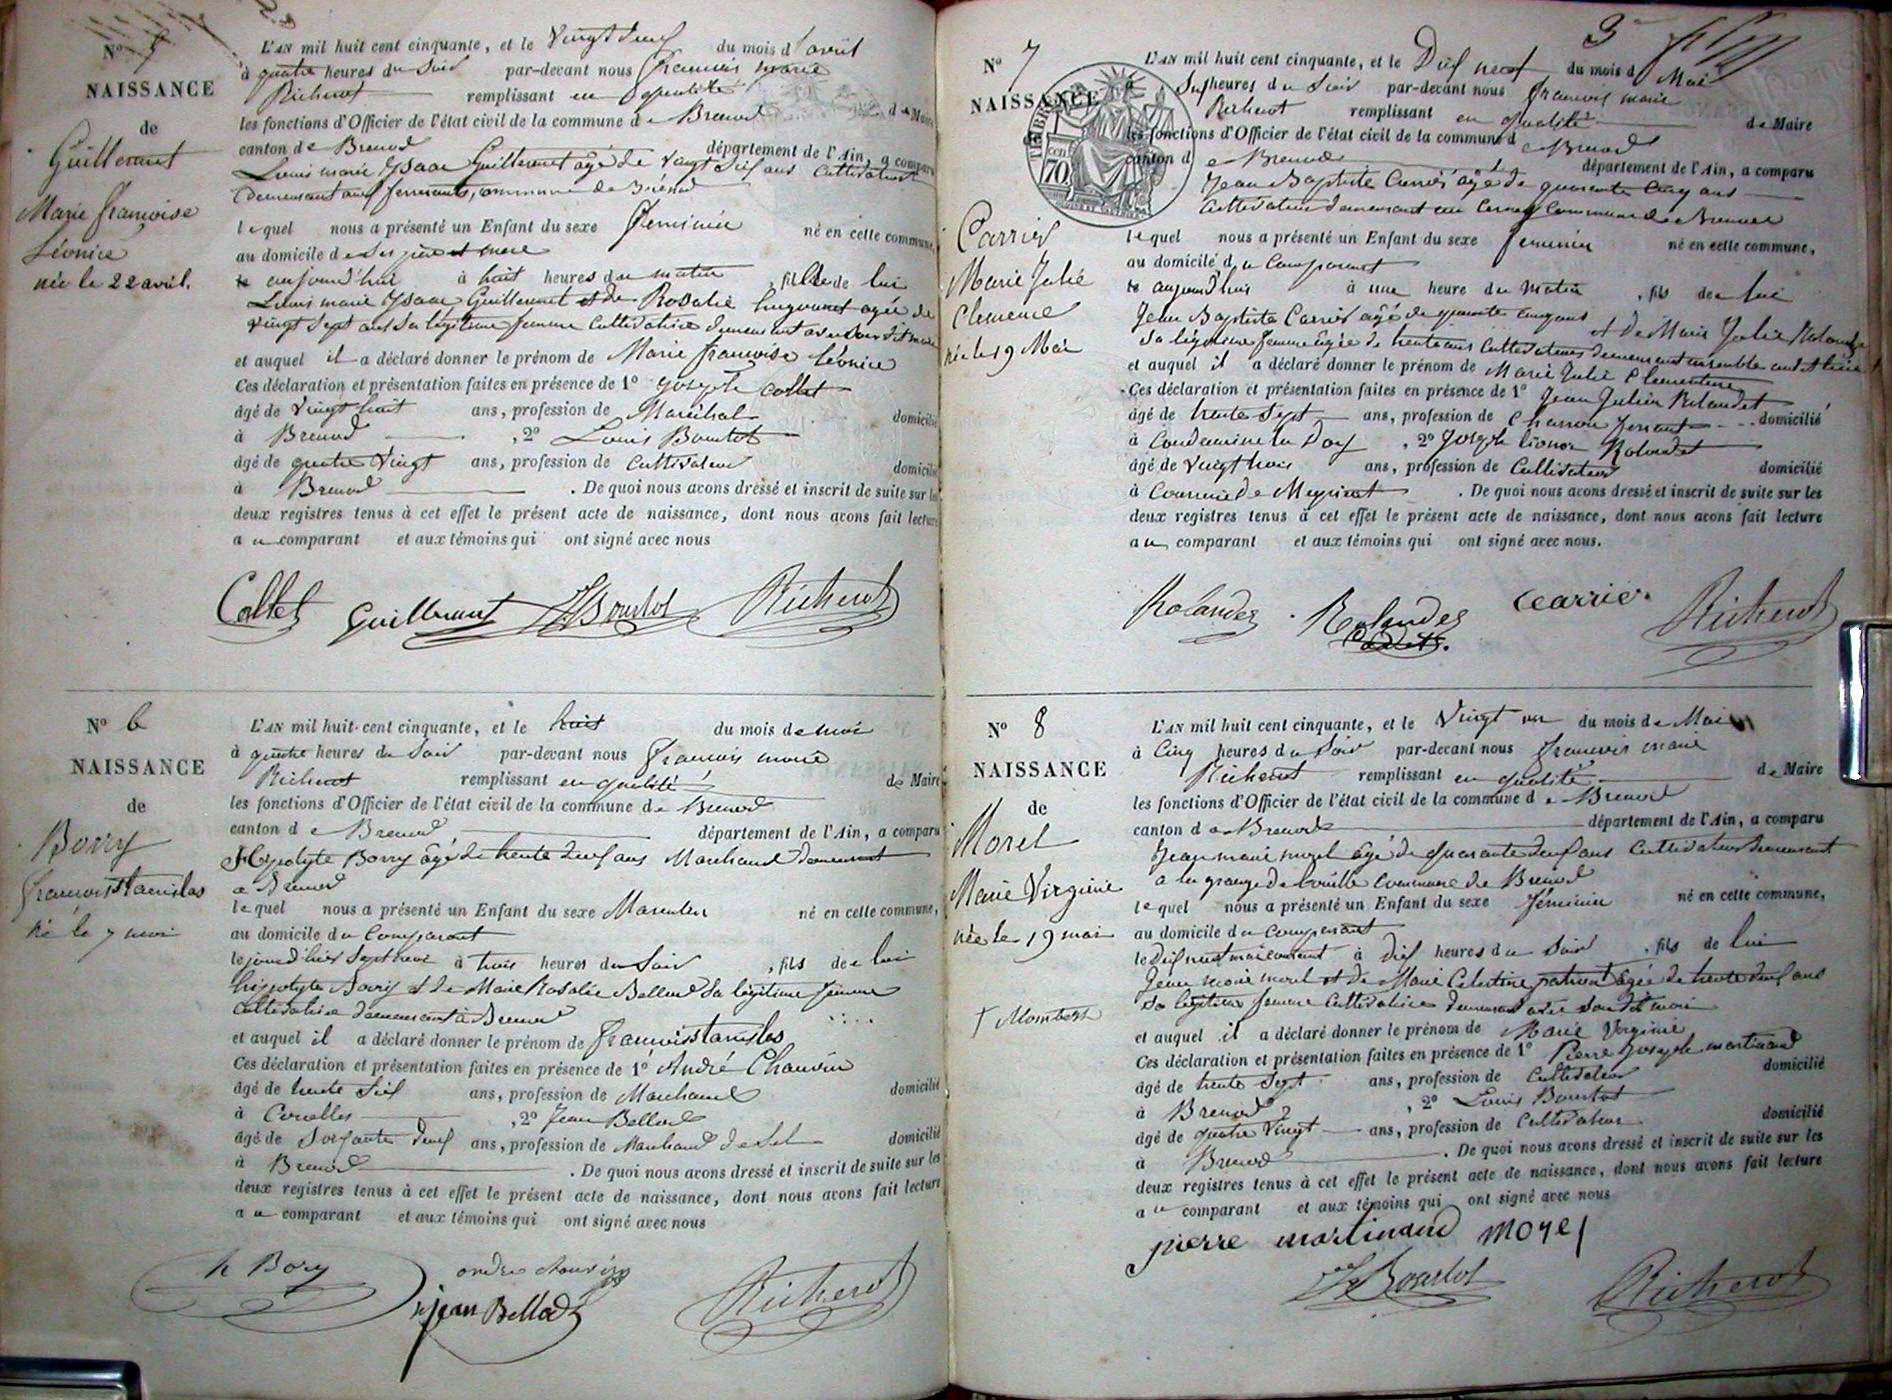 N° 5
NAISSANCE
de
Guillermet
Marie françoise
Léonice
née le 22 avril.
L'AN mil huit cent cinquante, et le Vingt deux du mois d'avril
à quatre heures du Soir par-devant nous françois marie
Richerot remplissant en qualité de Maire
les fonctions d'Officier de l'état civil de la commune de Brenod
canton de Brenod département de l'Ain, a comparu
Louis marie Ysaac Guillermet âgé de vingt Six ans Cultivateur
demeurant aux ferrants, commune de Brénod
lequel nous a présenté un Enfant du sexe féminin né en cette commune,
au domicile de Ses père et mere
le aujourd'hui à huit heures du matin, fille de lui
Louis marie Ysaac Guillermet et de Rosalie âgée de
vingt Sept ans Sa légitime femme Cultivatrice demeurant avec Son dit mari
et auquel il a déclaré donner le prénom de Marie françoise Léonice
Ces déclaration et présentation faites en présence de 1° Joseph Collet
âgé de vingt huit ans, profession de Maréchal domicilié
à Brenod, 2° Louis Bourlot
âgé de quatre Vingt ans, profession de Cultivateur domicilié
à Brenod. De quoi nous avons dressé et inscrit de suite sur les
deux registres tenus à cet effet le présent acte de naissance, dont nous avons fait lecture
au comparant et aux témoins qui ont signé avec nous
Collet Guillermet L Bourlot Richerot
N° 6
NAISSANCE
de
Borry
françois Stanislas
né le 7 mai
L'AN mil huit-cent cinquante, et le huit du mois de mai
à quatre heures du Soir par-devant nous françois marie
Richerot remplissant en qualité de Maire
les fonctions d'Officier de l'état civil de la commune de Brenod
canton de Brenod département de l'Ain, a comparu
Hypolyte Borry âgé de trente deux ans Marchand demeurant
a Brenod
lequel nous a présenté un Enfant du sexe Masculin né en cette commune,
au domicile du Comparant
le jour d'hier Sept mai à trois heures du Soir, fils de lui
hippolyte Borry et de Marie Rosalie Bellod Sa légitime femme
Cultivatrice demeurant à Brenod
et auquel il a déclaré donner le prénom de françois Stanislas
Ces déclaration et présentation faites en présence de 1° André Chauvin
âgé de trente Six ans, profession de Marchand domicilié
à Corcelles, 2° Jean Bellod
âgé de Soixante deux ans, profession de Marchand de Sel domicilié
à Brenod. De quoi nous avons dressé et inscrit de suite sur les
deux registres tenus à cet effet le présent acte de naissance, dont nous avons fait lecture
au comparant et aux témoins qui ont signé avec nous
h Bory andre chauvin
jean Bellod Richerot
3
N° 7
NAISSANCE
TIMBRE
70
Carrier
Marie Julie
Clemence
née le 19 Mai
L'AN mil huit cent cinquante, et le Dix neuf du mois de Mai
à Six heures du Soir par-devant nous françois marie
Richerot remplissant en qualité de Maire
les fonctions d'Officier de l'état civil de la commune de Brenod
canton de Brenod département de l'Ain, a comparu
Jean Baptiste Carrier âgé de quarante Cinq ans
Cultivateur demeurant au Commune de Brenod
lequel nous a présenté un Enfant du sexe féminin né en cette commune,
au domicile du Comparant
le aujourd'hui à une heure du Matin, fils de lui
Jean Baptiste Carrier âgé de quarante cinq ans et de Marie Julie Rolandez
Sa légitime femme âgée de trente ans Cultivateurs demeurant ensemble
et auquel il a déclaré donner le prénom de Marie Julie Clementine
Ces déclaration et présentation faites en présence de 1° Jean Julien Rolandet
âgé de trente Sept ans, profession de Charron domicilié
à Condamine la Doy, 2° Joseph Rolandet
âgé de vingt trois ans, profession de Cultivateur domicilié
à. De quoi nous avons dressé et inscrit de suite sur les
deux registres tenus à cet effet le présent acte de naissance, dont nous avons fait lecture
au comparant et aux témoins qui ont signé avec nous.
Rolandez Rolandez Cearrier Richerot
N° 8
NAISSANCE
de
Morel
Marie Virginie
née le 19 mai
L'AN mil huit cent cinquante, et le Vingt un du mois de Mai
à Cinq heures du Soir par-devant nous françois marie
Richerot remplissant en qualité de Maire
les fonctions d'Officier de l'état civil de la commune de Brenod
canton de Brenod département de l'Ain, a comparu
Jean marie morel âgé de quarante deux ans Cultivateur demeurant
a la grange de commune de Brénod
lequel nous a présenté un Enfant du sexe féminin né en cette commune,
au domicile du comparant
le dix neuf mai courant à dix heures du Soir, fils de lui
Jean marie morel et de Marie Celestine âgée de trente deux ans
Sa légitime femme Cultivatrice demeurant avec Son dit mari
et auquel il a déclaré donner le prénom de Marie Virginie
Ces déclaration et présentation faites en présence de 1° Pierre Joseph martinand
âgé de trente Sept ans, profession de Cultivateur domicilié
à Brenod, 2° Louis Bourlot
âgé de quatre Vingt ans, profession de Cultivateur domicilié
à Brenod. De quoi nous avons dressé et inscrit de suite sur les
deux registres tenus à cet effet le présent acte de naissance, dont nous avons fait lecture
au comparant et aux témoins qui ont signé avec nous
pierre martinand morel
L Bourlot Richerot